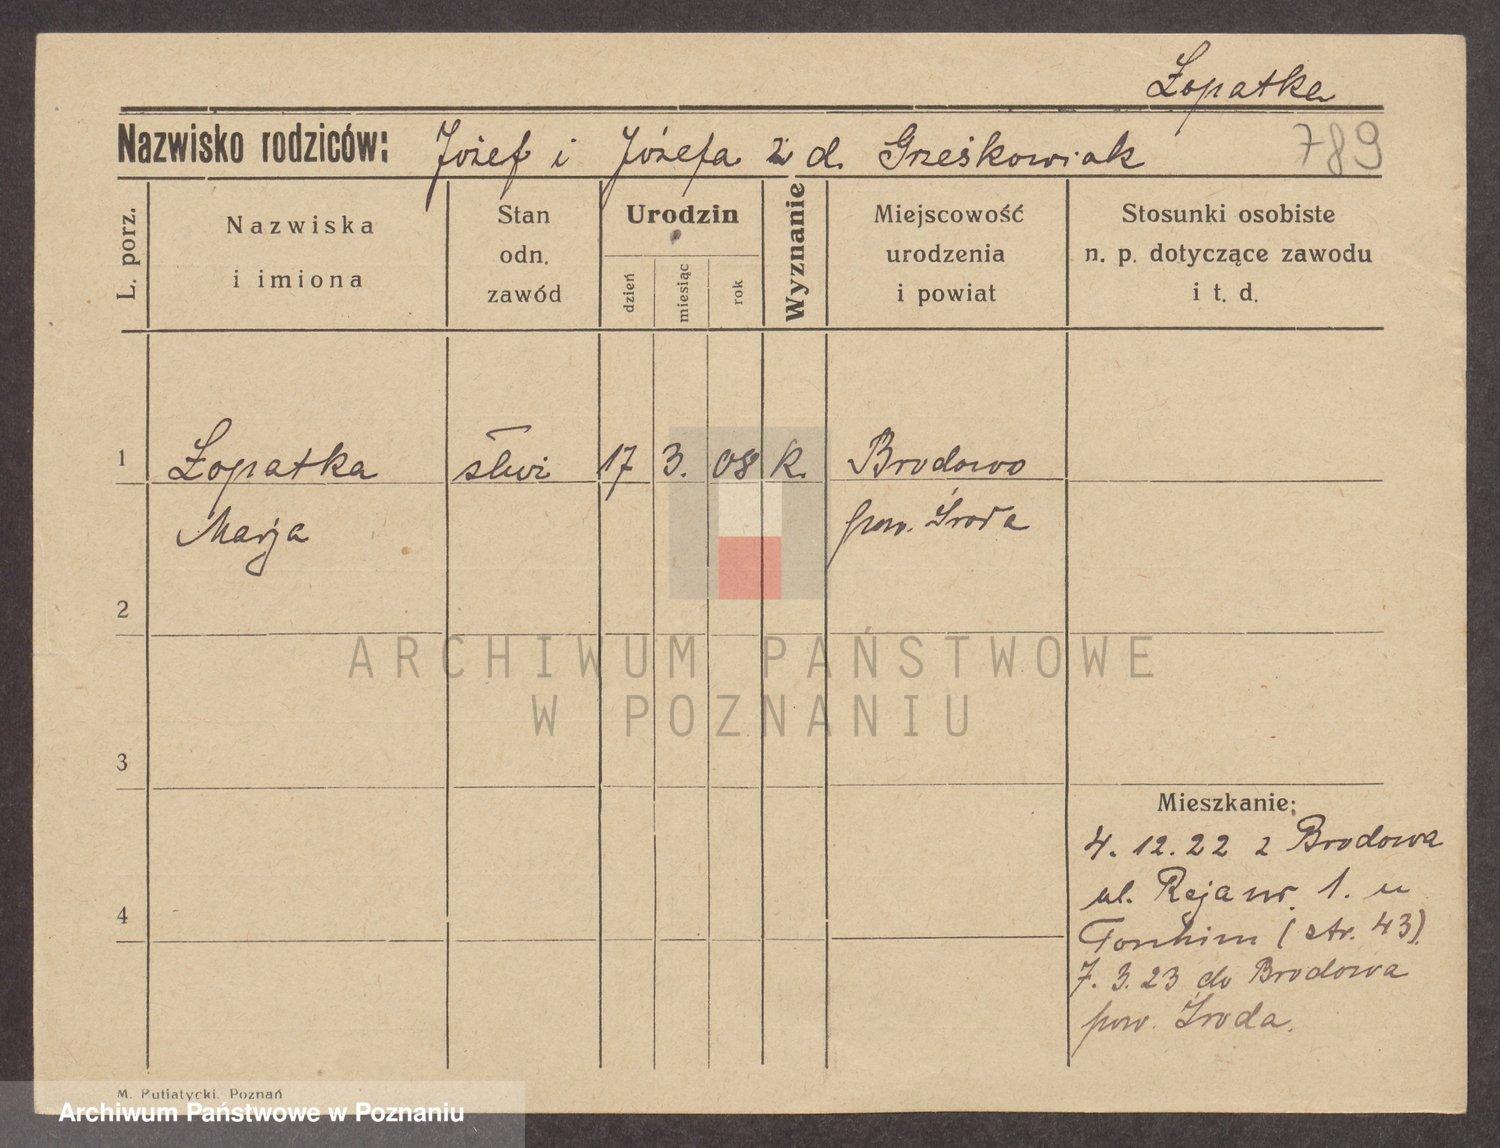 Łopatka
Nazwisko rodziców: Józef i Józefa z d. Grześkowiak
789
L. porz.
Nazwiska
i imiona
Stan
odn.
zawód
Urodzin
dzień
miesiąc
rok
Wyznanie
Miejscowość
urodzenia
i powiat
Stosunki osobiste
n. p. dotyczące zawodu
i t. d.
1 Łopatka 17 3. 08 k. Brodowo
Marja pow. Środa
2
3
4
ARCHIWUM PAŃSTWOWE
W POZNANIU
Mieszkanie:
4. 12. 22 z Brodowa
ul. Reja nr. 1. u
(str. 43).
7. 3. 23 do Brodowa
pow. Środa.
M. Putiatycki, Poznań
Archiwum Państwowe w Poznaniu